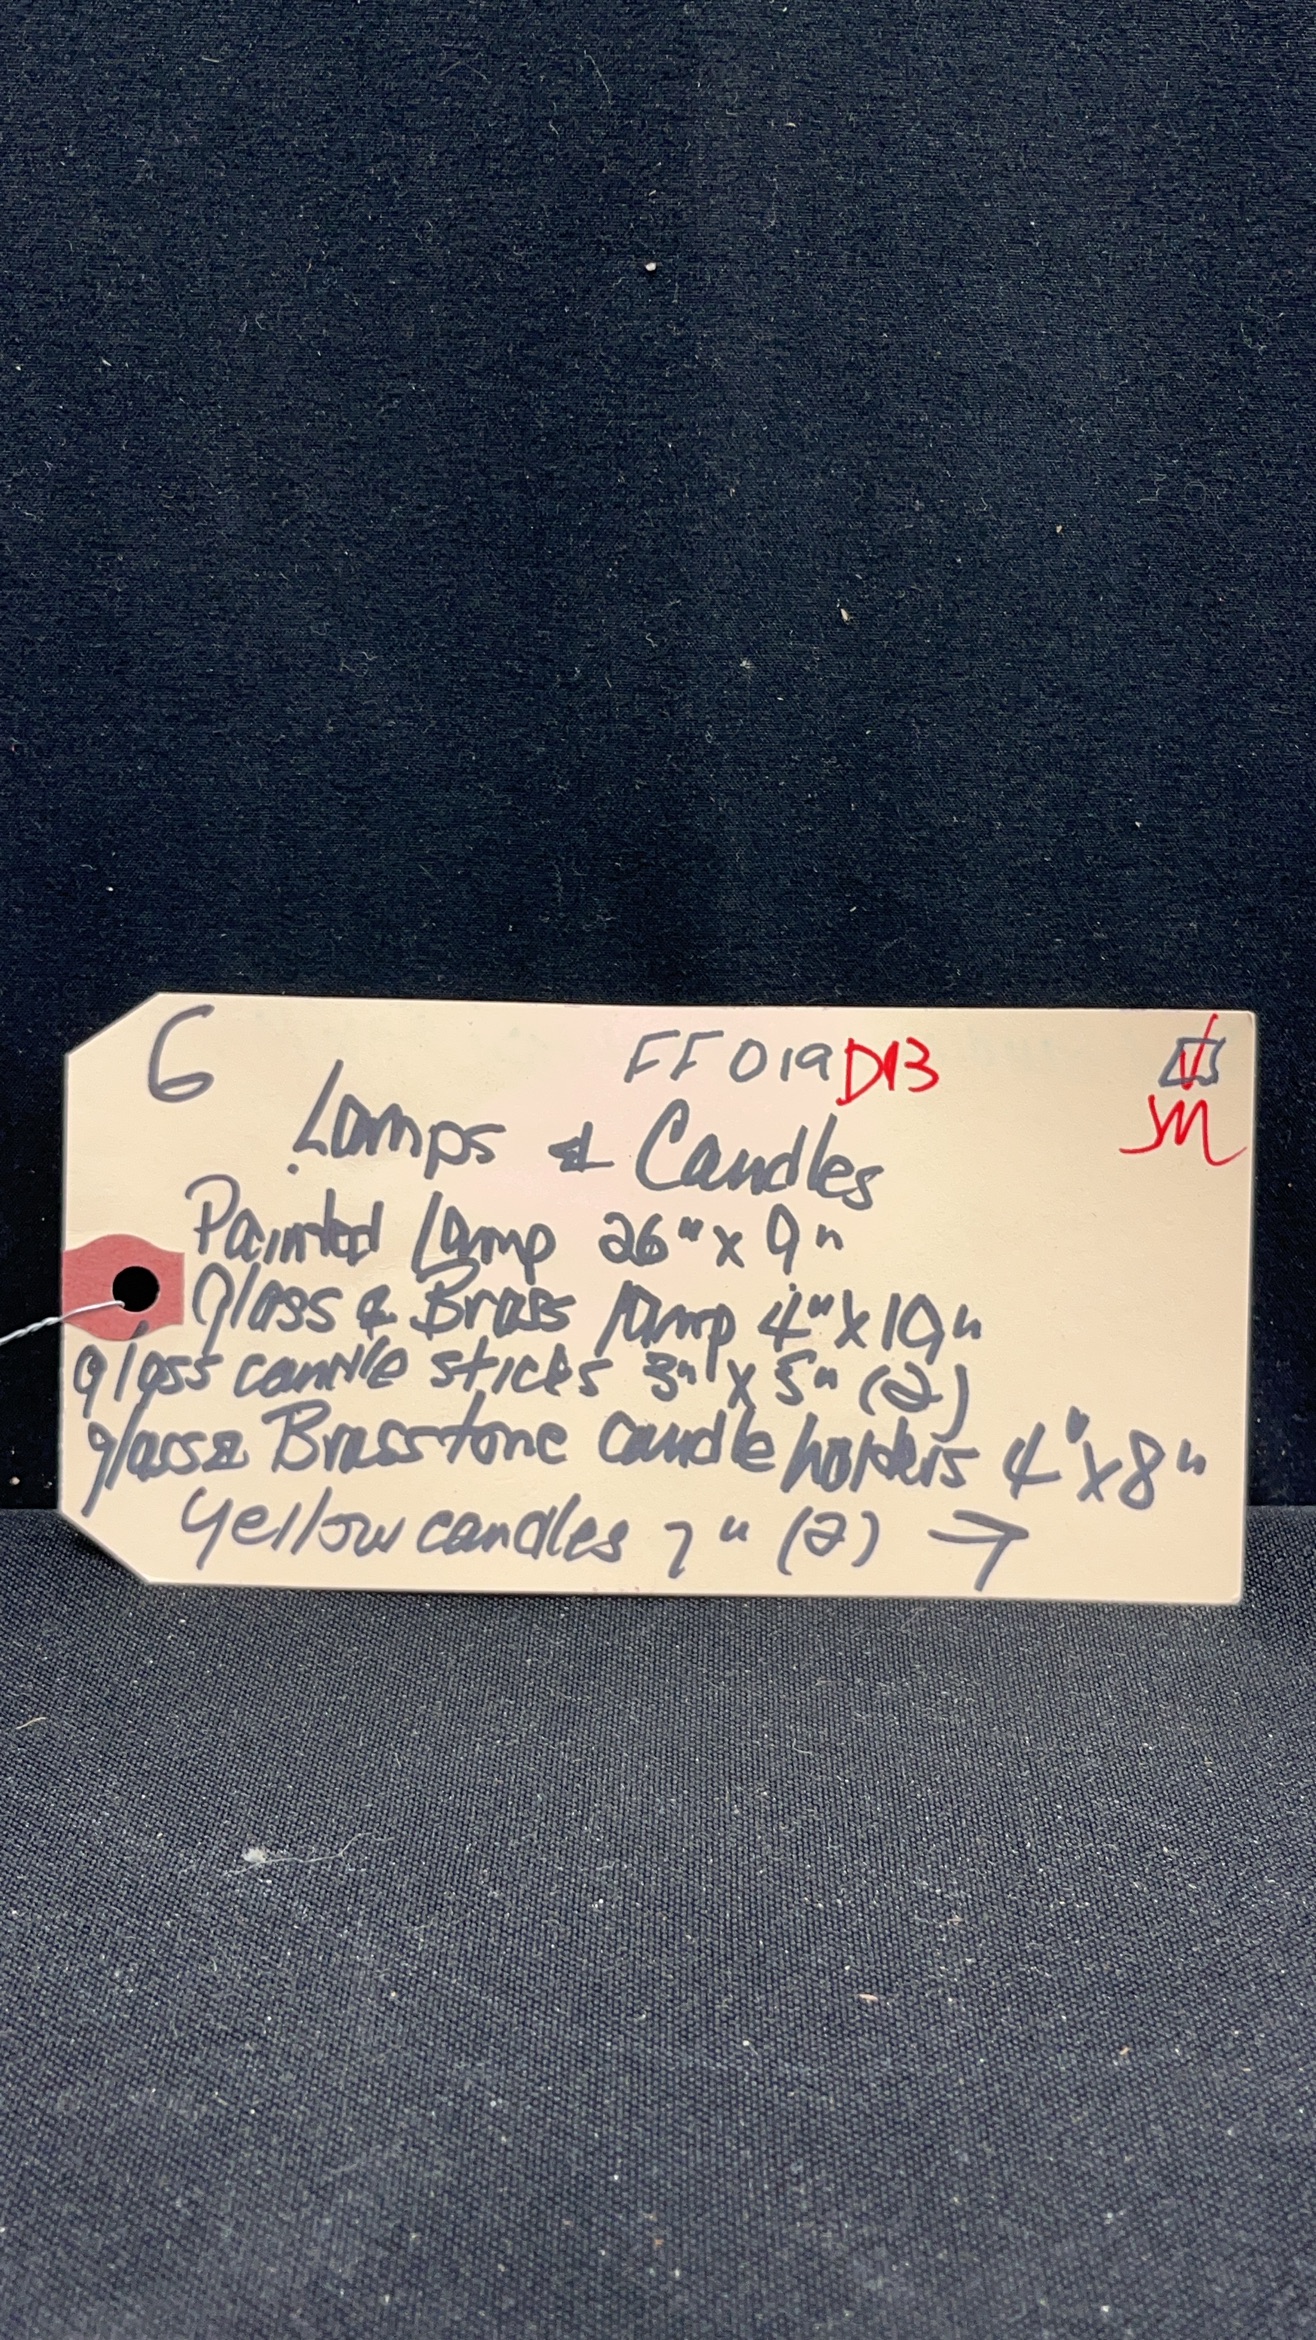 6 FF019 D13
Lamps & Candles
Painted Lamp 26" x 9"
Glass & Brass lamp 4" x 19"
glass candle sticks 3" x 5" (2)
glass & Brasstone candle holders 4" x 8"
Yellow candles 7" (2) →